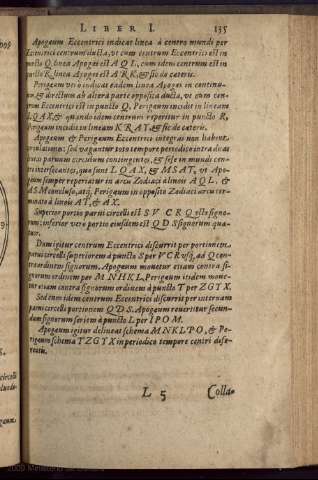 LIBER I. 135
Apogeum Eccentrici indicat linea à centro mundi per
Eccentrici centrum ducta, vt cum centrum Eccentrici est in
puncto Q, linea Apogei est A Q L, cum idem centrum est in
puncto R, linea Apogei est A R K, & sic de cæteris.
Perigeum verò indicat eadem linea Apogei in continuum
& directum ab altera parte opposita ducta, vt cum centrum
Eccentrici est in puncto Q, Perigeum incidit in lineam
L Q A X, & quando idem centrum reperitur in puncto R,
Perigeum incidit in lineam K R A T, & sic de cæteris.
Apogeum & Perigeum Eccentrici integras non habent
sed vagantur toto tempore periodico intra duas
paruum circulum contingentes, & sese in mundi centro
intersecantes, quæ sunt L Q A X, & M S A T, vt Apogeum
semper reperiatur in arcu Zodiaci à lineis A Q L, &
A S M concluso, atq; Perigeum in opposito Zodiaci arcu terminato
à lineis A T, & A X.
Superior portio parui circelli est S V C R Q sex signorum;
inferior verò portio eiusdem est Q D S signorum quatuor.
Dum igitur centrum Eccentrici discurrit per portionem
parui circelli superiorem à puncto S per V C R vsq; ad Q contra
ordinem signorum, Apogeum mouetur etiam contra signorum
ordinem per M N H K L, Perigeum itidem mouetur
etiam contra signorum ordinem à puncto T per Z G Y X.
Sed cum idem centrum Eccentrici discurrit per infernam
parui circelli portionem Q D S, Apogeum reuertitur secundum
signorum seriem à puncto L per I P O M.
Apogeum igitur delineat schema M N K L P O, & Perigeum
schema T Z G Y X in periodico tempore centri deferentis.
L 5 Colla-